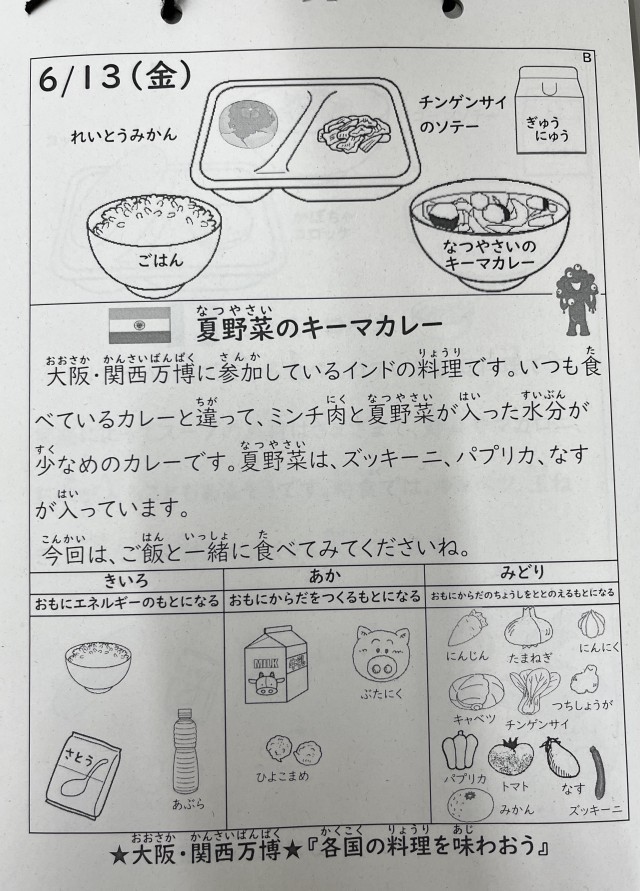 B
6/13(金)
れいとうみかん
チンゲンサイ
のソテー
ぎゅう
にゅう
ごはん
なつやさいの
キーマカレー
なつやさい
夏野菜のキーマカレー
おおさか かんさいばんぱく さんか りょうり た
大阪・関西万博に参加しているインドの料理です。いつも食
ちが にく なつやさい はい すいぶん
べているカレーと違って、ミンチ肉と夏野菜が入った水分が
すく なつやさい
少なめのカレーです。夏野菜は、ズッキーニ、パプリカ、なす
はい
が入っています。
こんかい はん いっしょ た
今回は、ご飯と一緒に食べてみてくださいね。
きいろ あか みどり
おもにエネルギーのもとになる おもにからだをつくるもとになる おもにからだのちょうしをととのえるもとになる
MILK
ぶたにく
にんじん たまねぎ にんにく
キャベツ チンゲンサイ つちしょうが
さとう
あぶら
ひよこまめ
パプリカ トマト なす
みかん ズッキーニ
おおさか かんさいばんぱく かくこく りょうり あじ
★大阪・関西万博★『各国の料理を味わおう』